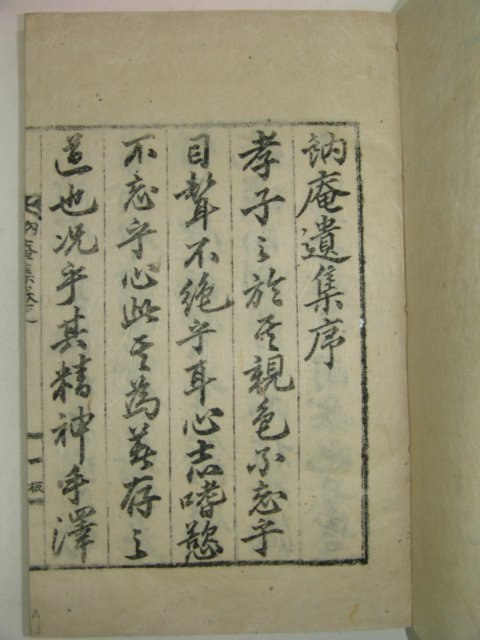 訥庵遺集序
孝子之於其親色不忘乎
目聲不絶乎耳心志嗜慾
不忘乎心此其為著存之
道也况乎其精神手澤
訥庵集
一
板